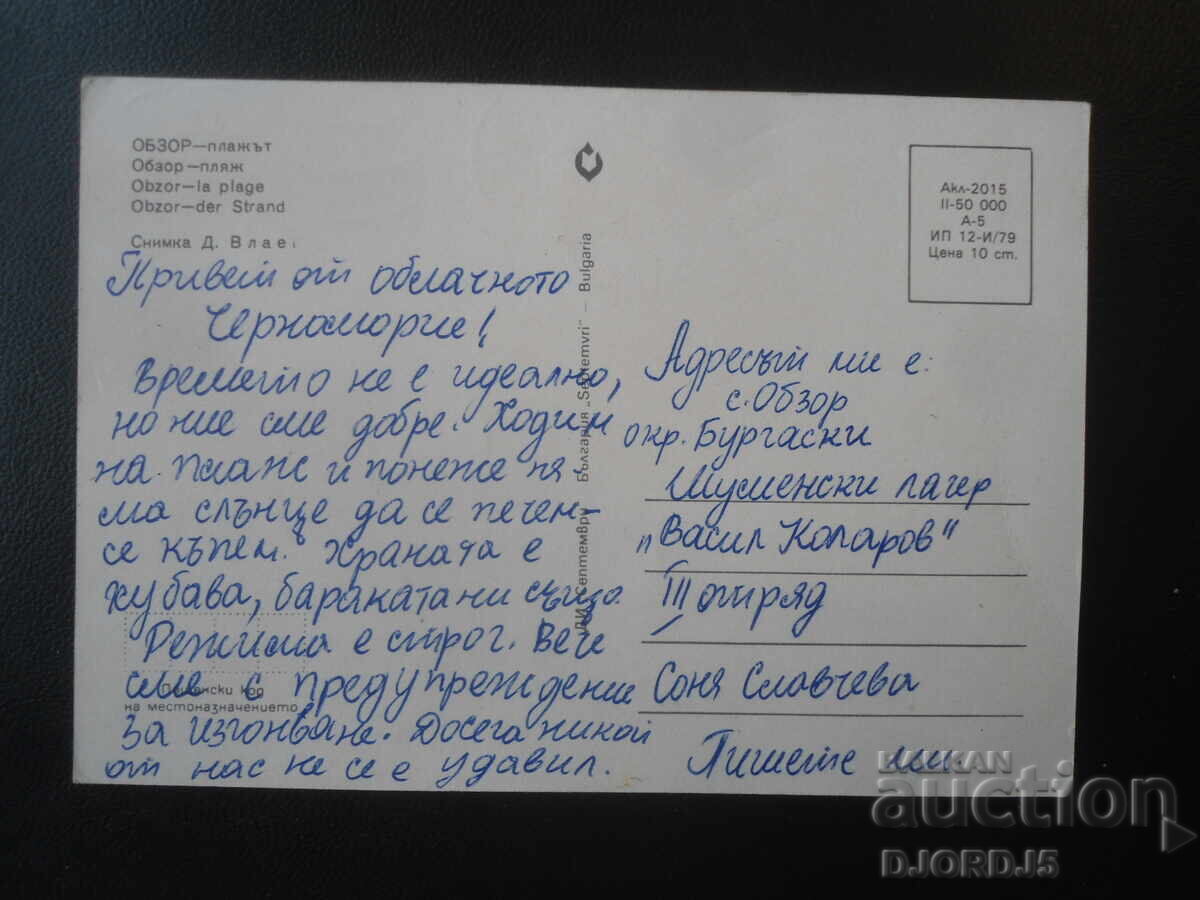 ОБЗОР—плажът
Обзор—пляж
Obzor—la plage
Obzor—der Strand
Снимка Д. Влаев
Привет от облачното
Черноморие!
Времето не е идеално,
но ние сме добре. Ходим
на плаж и понеже ня-
ма слънце да се печем-
се къпем. Храната е
хубава, бараката ни също.
Режима е строг. Вече
сме с предупреждение
за изгонване. Досега никой
от нас не се е удавил.
Пощенски код
на местоназначението
ДИ „Септември" България „Septemvri" — Bulgaria
Акл-2015
II-50 000
А-5
ИП 12-И/79
Цена 10 ст.
Адресът ми е:
с. Обзор
окр. Бургаски
Шуменски лагер
"Васил Коларов"
III отряд
Соня Славчева
Пишете ми.
BALKAN
auction
DJORDJ5